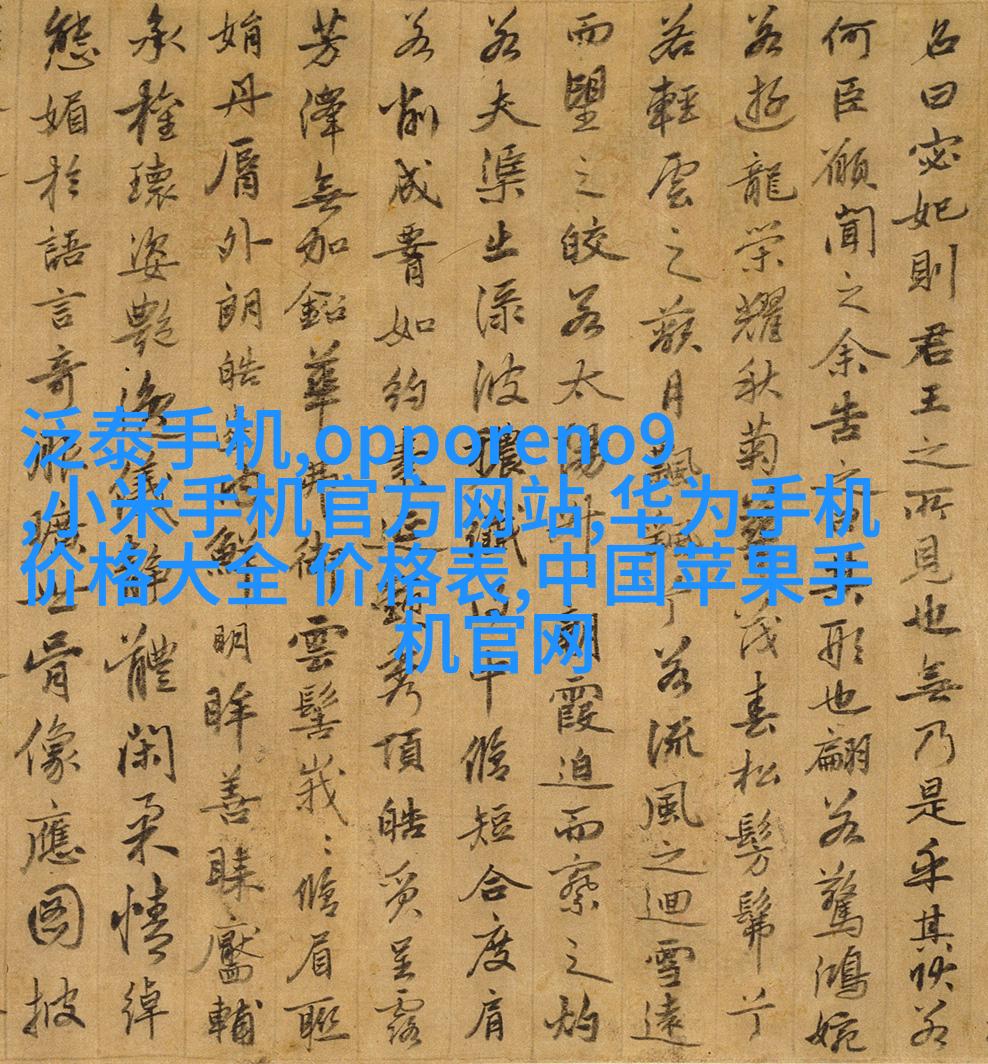 名曰宓妃則君王之所見也無乃是乎其狀若
何臣願聞之余告之曰其形也翩若驚鴻婉
若遊龍榮耀秋菊華茂春松髣髴兮
若輕雲之蔽月飄颻兮若流風之迴雪遠
而望之皎若太陽升朝霞迫而察之灼
若夫渠出淥波穠纖得中脩短合度肩
若削成腰如約素延頸秀項皓質呈露
芳澤無加鉛華弗御雲髻峩〻脩眉聯
娟丹脣外朗皓齒内鮮明眸善睞靨輔
承權瓌姿艷逸儀靜體閑柔情綽
態媚於語言奇服曠世骨像應圖披
泛泰手机,opporeno9
,小米手机官方网站,华为手机
价格大全 价格表,中国苹果手
机官网